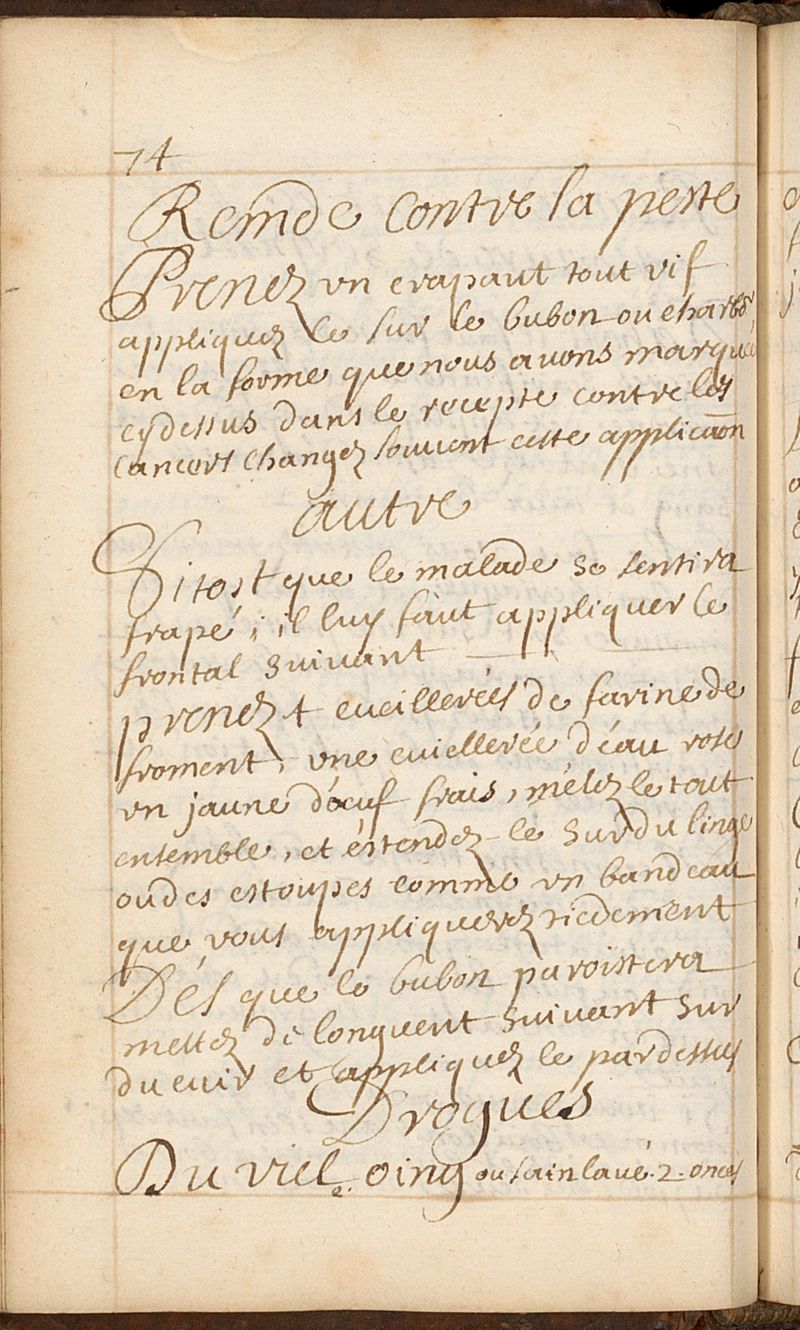 74
Remde contre la peste
Prenez vn crapaut tout vif
appliquez le sur le bubon ou charbon
en la forme que nous avons marquée
cy dessus dans le recepte contre les
cancers changez souvent cette applicaon
autre
Sitost que le malade se sentira
frapé, il luy faut appliquer le
frontal suivant
prenez 4 cueillerées de farine de
froment, vne cuiellerée d'éau rose
vn jaune d'oeuf frais, mélez le tout
ensemble, et éstendez le sur du linge
ou des estoupes comme vn bandeau
que vous appliquerez tiedement
Dés que le bubon paroistera
mettez de longuent suivant sur
du cuir et appliquez le par dessus
Drogues
Du viel oing ou sain lavé. 2. onces